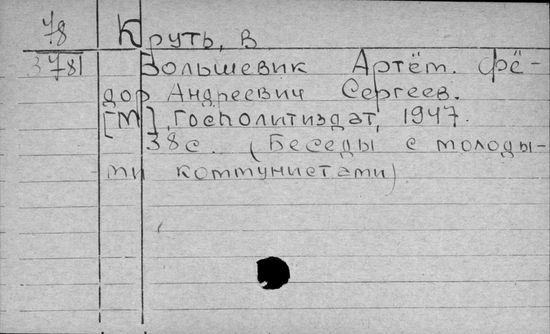 78 Круть, В
3781 Большевик Артём. Фё-
дор Андреевич Сергеев.
[М], Госполитиздат, 1947.
38с. (Беседы с молоды-
ми коммунистами)